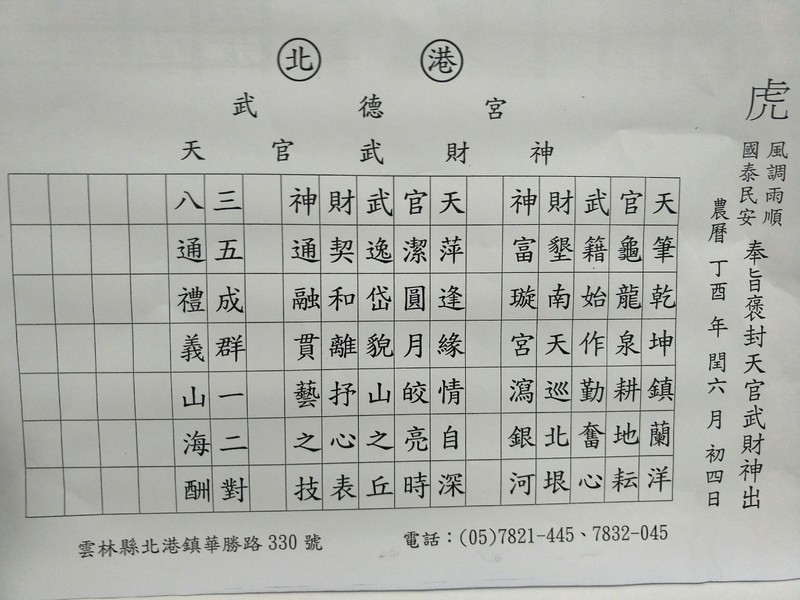 北港
武德宮
天官武財神
虎
風調雨順
國泰民安
奉旨褒封天官武財神出
農曆 丁酉年 閏六月 初四日
天筆乾坤鎮蘭洋
官龜龍泉耕地耘
武籍始作勤奮心
財墾南天巡北垠
神富璇宮瀉銀河
天萍逢緣情自深
官潔圓月皎亮時
武逸岱貌山之丘
財契和離抒心表
神通融貫藝之技
三五成群一二對
八通禮義山海酬
雲林縣北港鎮華勝路330號
電話：(05)7821-445、7832-045